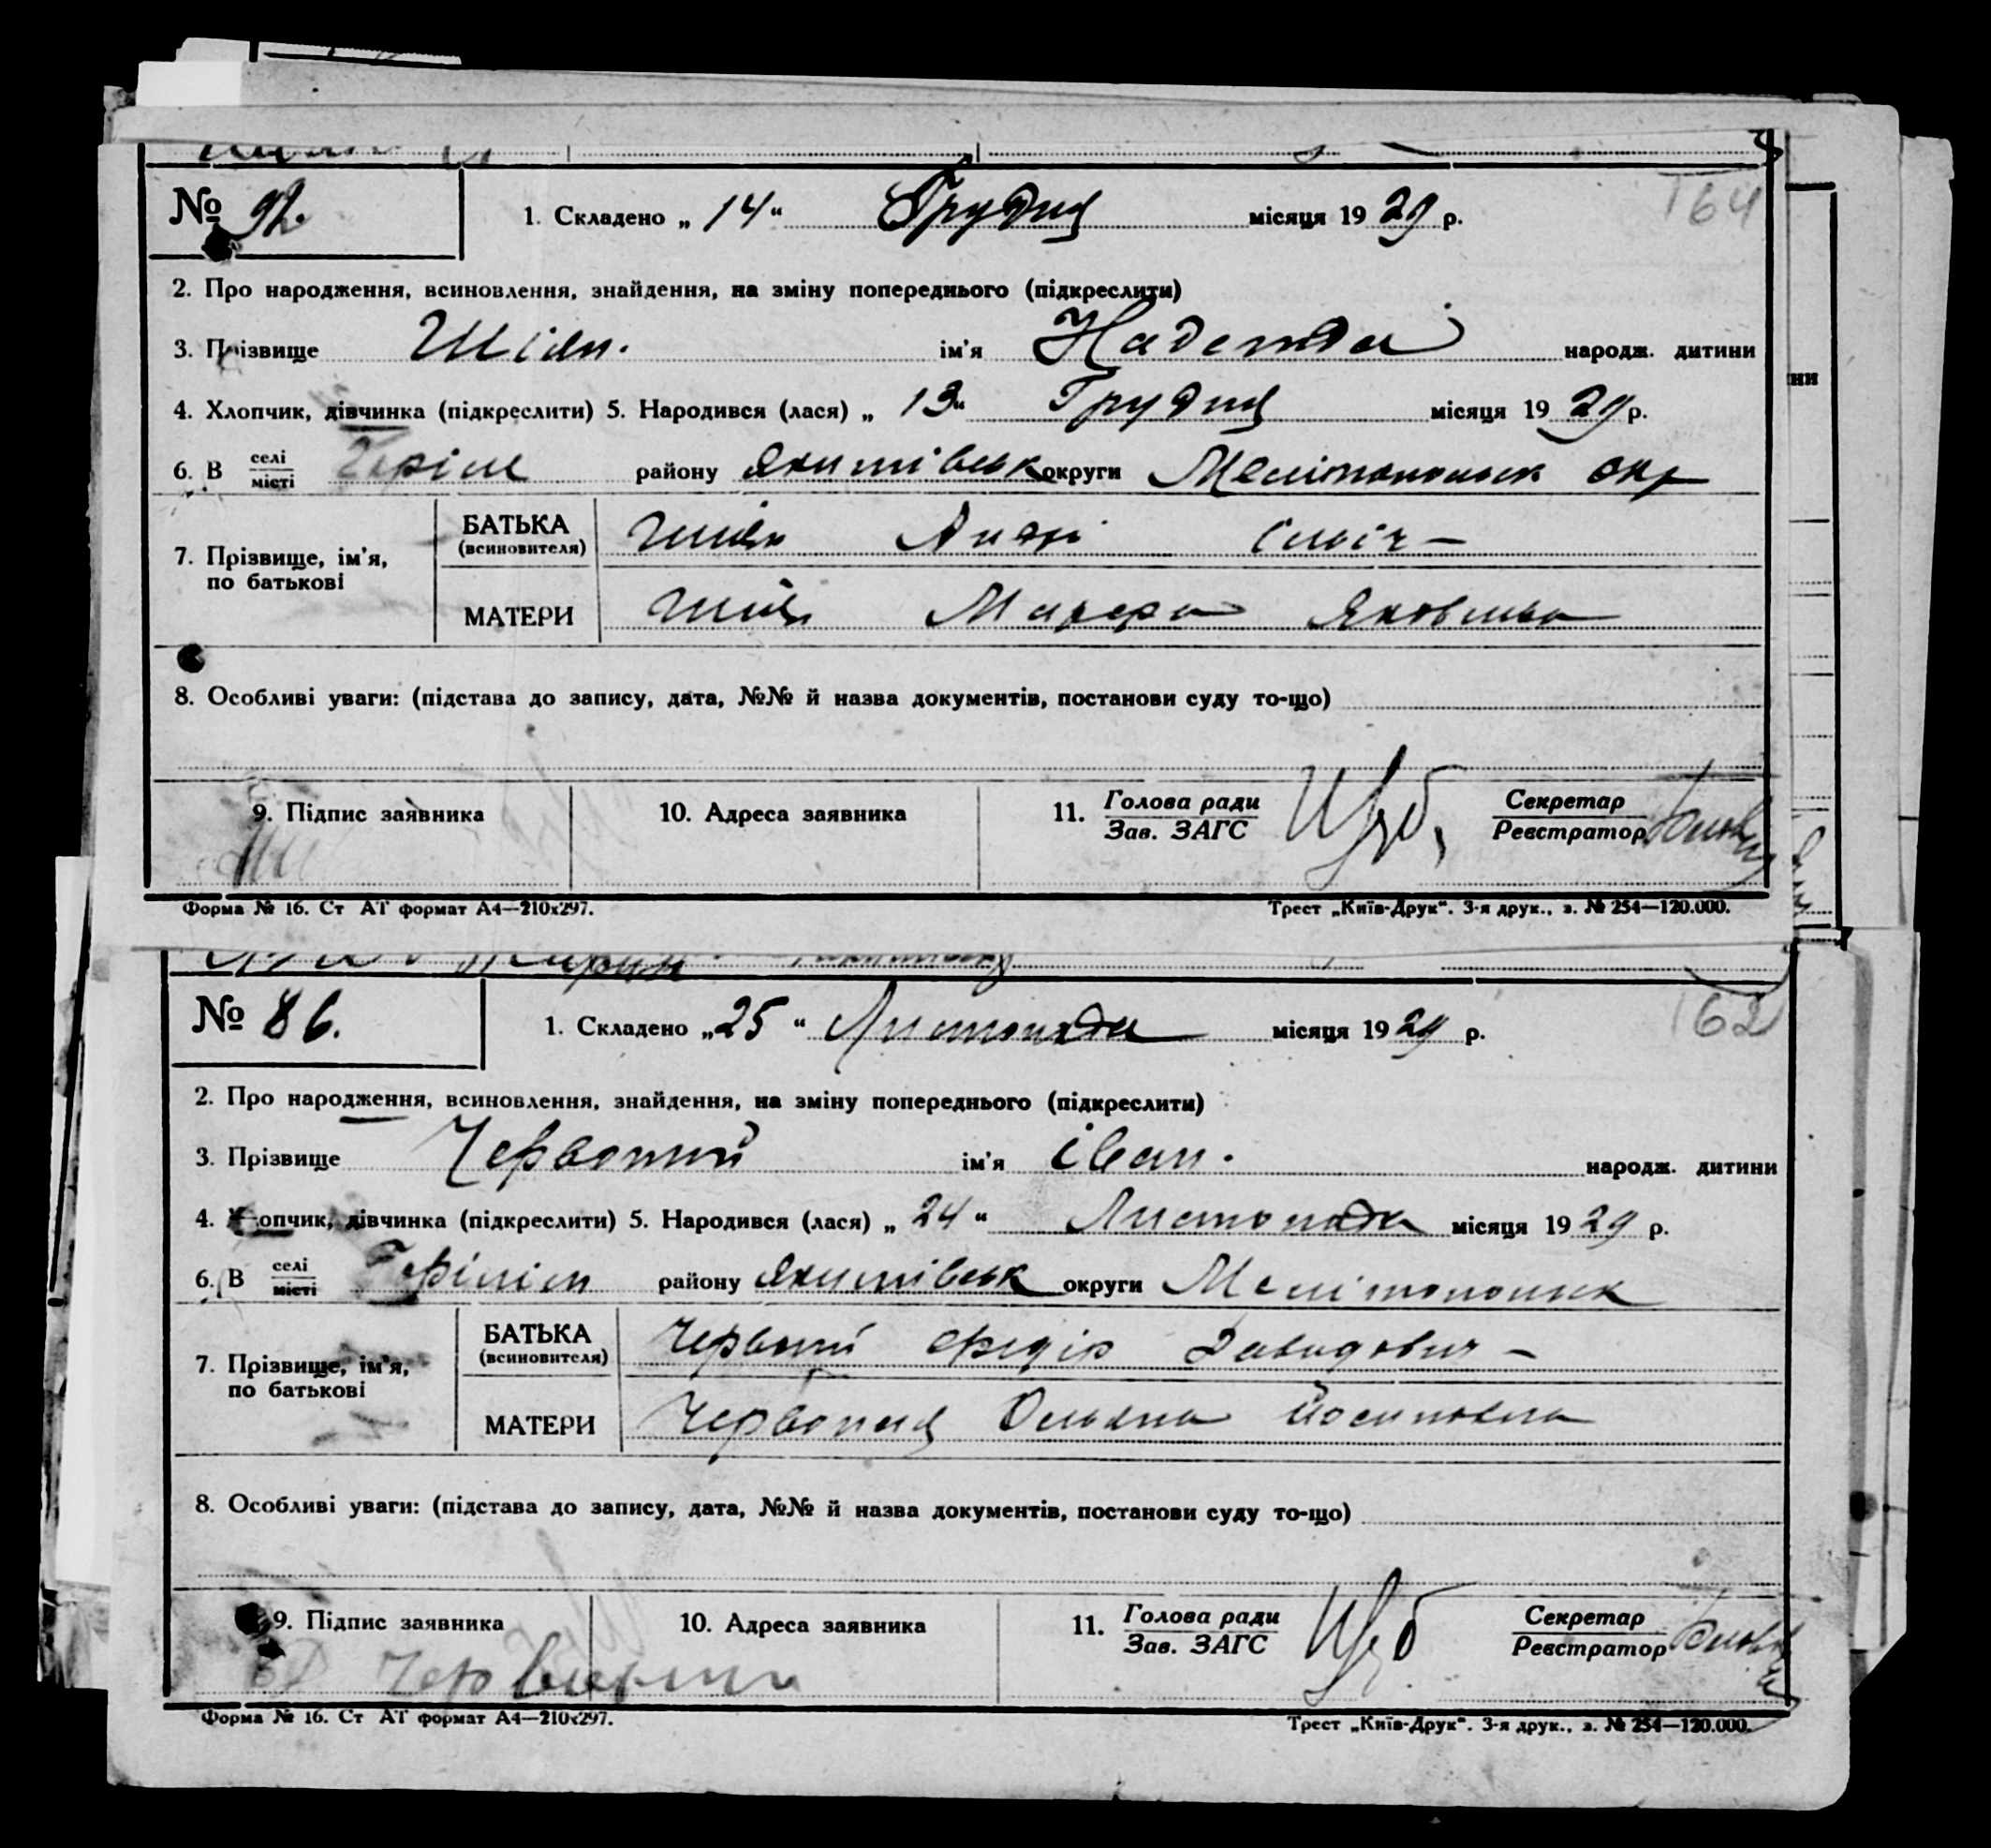 № 92. 1. Складено „ 14 “ Грудня місяця 19 29 р. 164
2. Про народження, всиновлення, знайдення, на зміну попереднього (підкреслити)
3. Прізвище Шіян. ім'я Надежда народж. дитини
4. Хлопчик, дівчинка (підкреслити) 5. Народився (лася) „ 13 “ Грудня місяця 19 29 р.
6. В селі/місті району Якимівськ округи Мелітопольськ окр
7. Прізвище, ім'я, по батькові
БАТЬКА (всиновителя) Шиян
МАТЕРИ Шиян Яковлівна
8. Особливі уваги: (підстава до запису, дата, №№ й назва документів, постанови суду то-що)
9. Підпис заявника 10. Адреса заявника 11. Голова ради/Зав. ЗАГС Секретар/Реєстратор
Форма № 16. Ст АТ формат А4—210х297. Трест „Київ-Друк“. 3-я друк., з. № 254—120.000.
№ 86. 1. Складено „ 25 “ Листопада місяця 19 29 р. 162
2. Про народження, всиновлення, знайдення, на зміну попереднього (підкреслити)
3. Прізвище Червоний ім'я іван. народж. дитини
4. Хлопчик, дівчинка (підкреслити) 5. Народився (лася) „ 24 “ Листопада місяця 19 29 р.
6. В селі/місті району Якимівськ округи Мелітопольськ
7. Прізвище, ім'я, по батькові
БАТЬКА (всиновителя) Червоний Федір Давидович
МАТЕРИ Червоная Йосиповна
8. Особливі уваги: (підстава до запису, дата, №№ й назва документів, постанови суду то-що)
9. Підпис заявника 10. Адреса заявника 11. Голова ради/Зав. ЗАГС Секретар/Реєстратор
Форма № 16. Ст АТ формат А4—210х297. Трест „Київ-Друк“. 3-я друк., з. № 254—120.000.